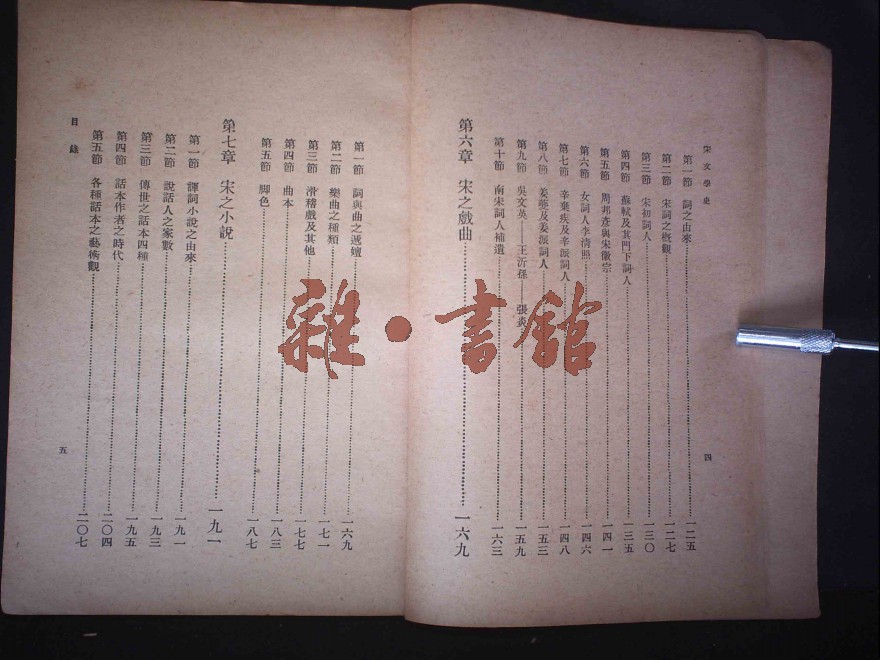 宋文學史
第一節 詞之由來 一二五
第二節 宋詞之概觀 一二七
第三節 宋初詞人 一三〇
第四節 蘇軾及其門下詞人 一三五
第五節 周邦彥與宋徽宗 一四一
第六節 女詞人李清照 一四六
第七節 辛棄疾及辛派詞人 一四八
第八節 姜夔及姜派詞人 一五三
第九節 吳文英——王沂孫 張炎 一五九
第十節 南宋詞人補遺 一六三
第六章 宋之戲曲 一六九
四
第一節 詞與曲之遞嬗 一六九
第二節 樂曲之種類 一七一
第三節 滑稽戲及其他 一七七
第四節 曲本 一八三
第五節 脚色 一八七
第七章 宋之小說 一九一
第一節 諢詞小說之由來 一九一
第二節 說話人之家數 一九三
第三節 傳世之話本四種 一九五
第四節 話本作者之時代 二〇四
第五節 各種話本之藝術觀 二〇七
目錄
五
雜·書館